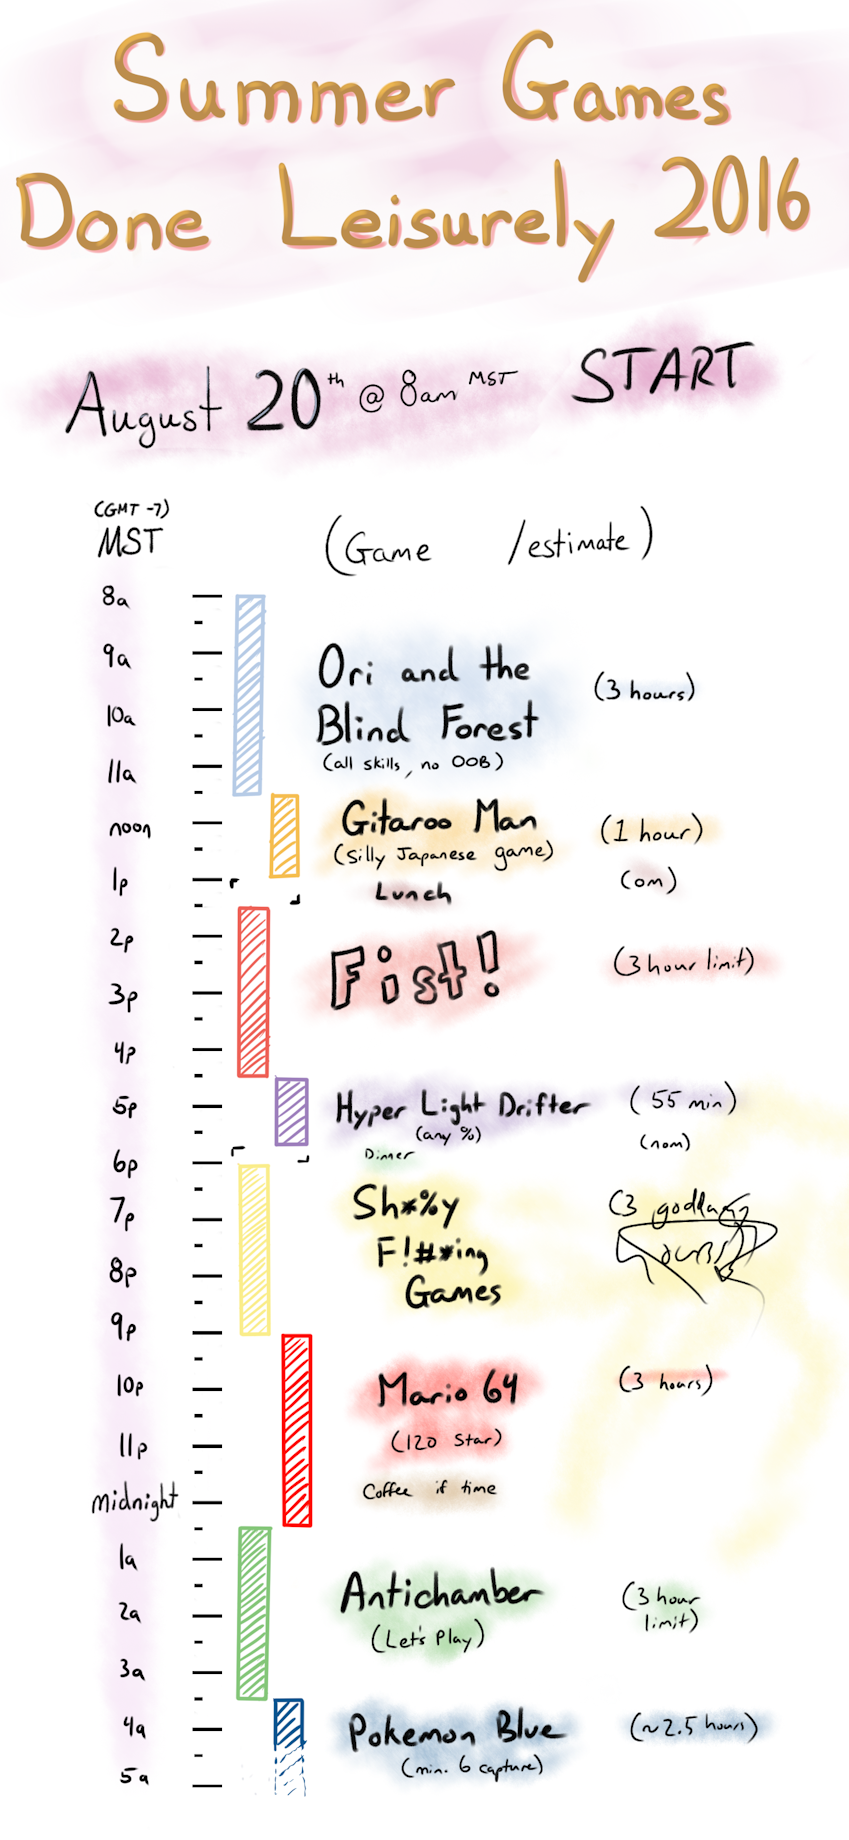 Summer Games
Done Leisurely 2016
August 20th @ 8am MST START
(GMT -7)
MST
(Game /estimate)
8a
9a
Ori and the
(3 hours)
10a
Blind Forest
11a
(all skills, no OOB)
noon
Gitaroo Man
(1 hour)
(Silly Japanese game)
1p
Lunch
(om)
2p
Fist!
(3 hour limit)
3p
4p
5p
Hyper Light Drifter
(55 min)
(any %)
Dinner
(nom)
6p
7p
Sh*%y
(3 goddamn
F!#*ing
hours)
8p
Games
9p
10p
Mario 64
(3 hours)
11p
(120 Star)
midnight
Coffee if time
1a
Antichamber
(3 hour
2a
limit)
(Let's Play)
3a
4a
Pokemon Blue
(~2.5 hours)
5a
(min. 6 capture)